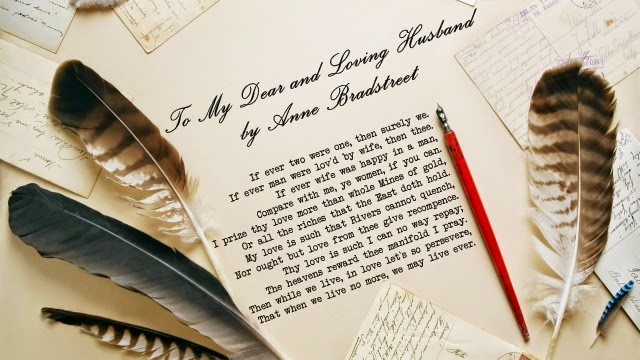 To My Dear and Loving Husband
by Anne Bradstreet
If ever two were one, then surely we.
If ever man were lov'd by wife, then thee.
If ever wife was happy in a man,
Compare with me, ye women, if you can.
I prize thy love more than whole Mines of gold,
Or all the riches that the East doth hold.
My love is such that Rivers cannot quench,
Nor ought but love from thee give recompence.
Thy love is such I can no way repay;
The heavens reward thee manifold I pray.
Then while we live, in love let's so persevere,
That when we live no more, we may live ever.